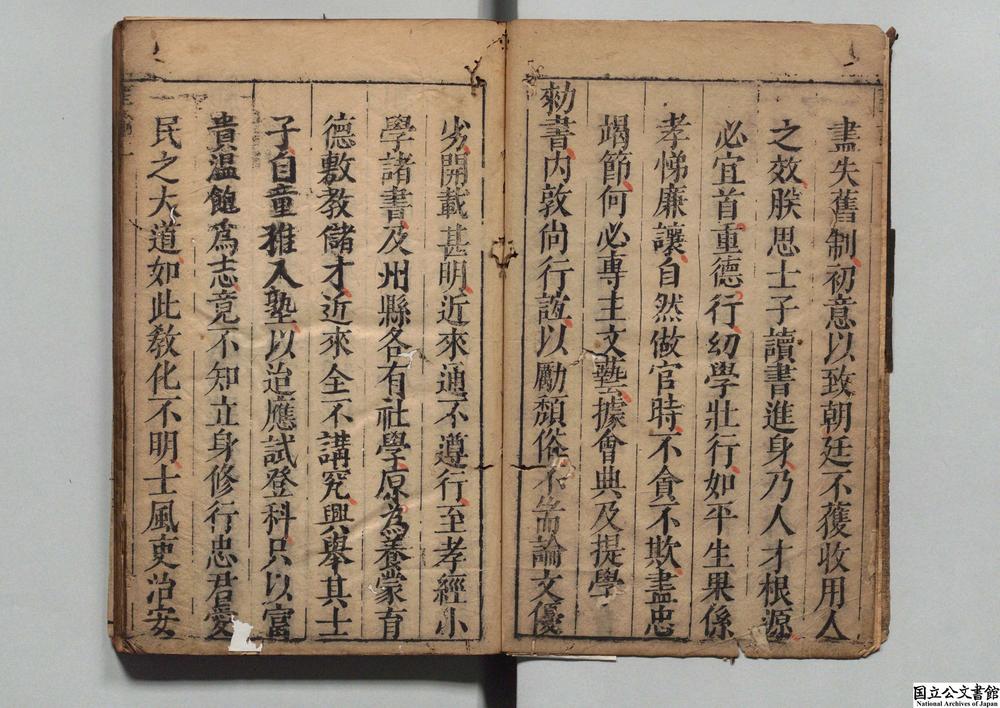 盡失舊制初意以致朝廷不獲收用人
之效朕思士子讀書進身乃人才根源
必宜首重德行幼學壯行如平生果係
孝悌廉讓自然做官時不貪不欺盡忠
竭節何必專主文藝據會典及提學
勑書內敦尚行誼以勵頹俗不耑論文優
劣開載甚明近來通不遵行至孝經小
學諸書及州縣各有社學原為養蒙育
德敷教儲才近來全不講究興舉其士
子自童稚入塾以迨應試登科只以富
貴溫飽為志竟不知立身修行忠君愛
民之大道如此教化不明士風吏治安
国立公文書館
National Archives of Japan